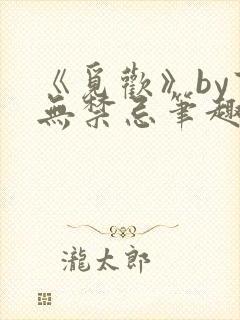 《覓歡》by
無禁忌筆趣
瀧太郎